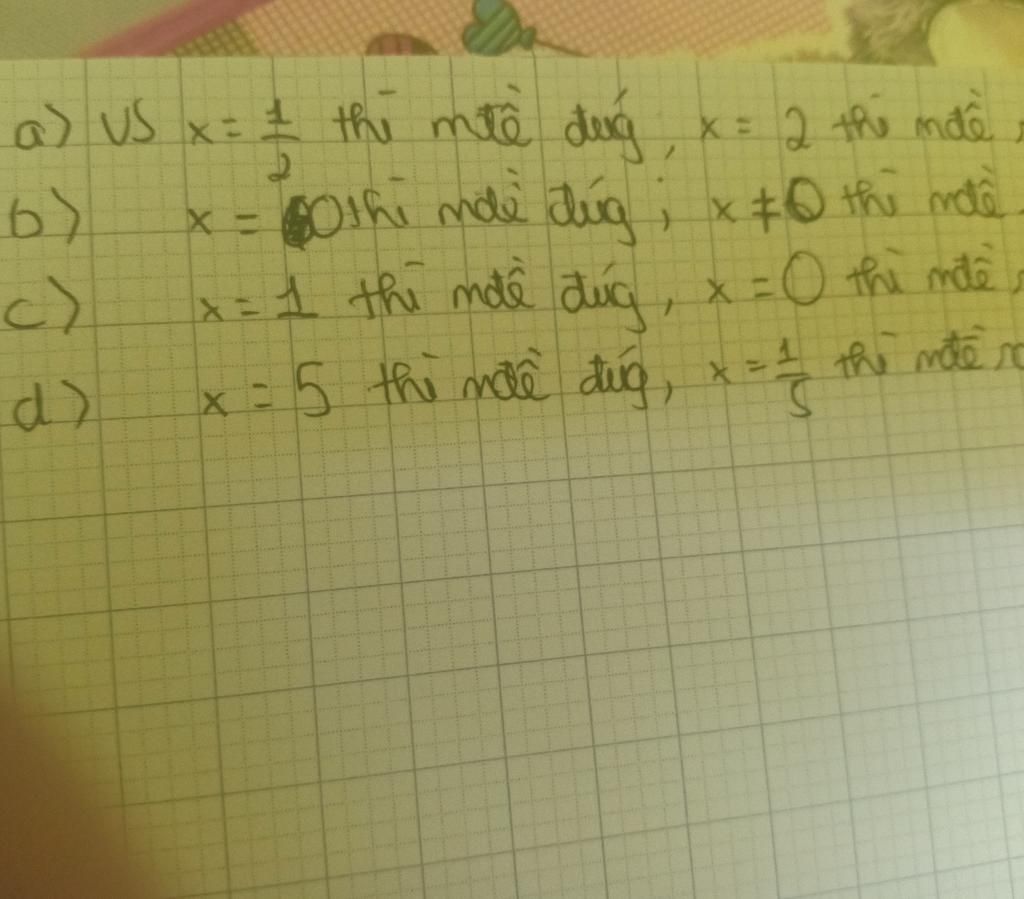 a) VS x = 1/2 thì mđề đúg, x = 2 thì mđề
b) x = 0 thì mđề đúg; x ≠ 0 thì mđề
c) x = 1 thì mđề đúg, x = 0 thì mđề
d) x = 5 thì mđề đúg, x = 1/5 thì mđề